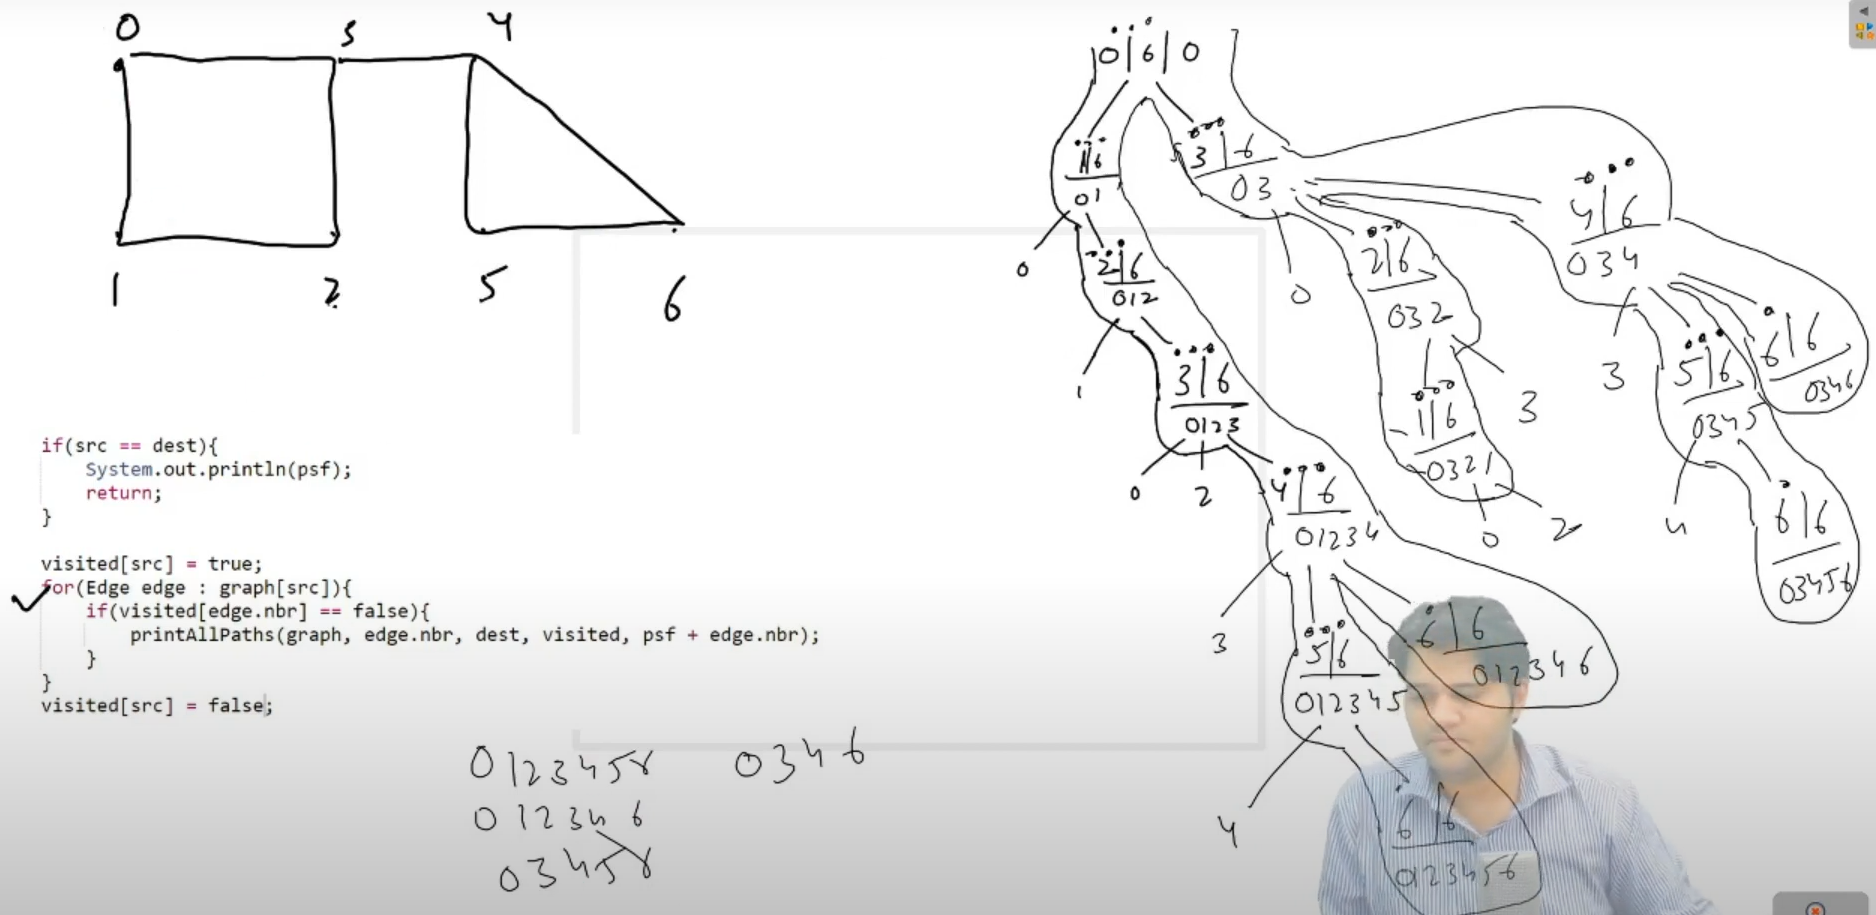 0 3 4
1 2 5 6
if(src == dest){
System.out.println(psf);
return;
}
visited[src] = true;
for(Edge edge : graph[src]){
if(visited[edge.nbr] == false){
printAllPaths(graph, edge.nbr, dest, visited, psf + edge.nbr);
}
}
visited[src] = false;
0123456
012346
03456
0346
0|6|0
1|6
01
0
2|6
012
1
3|6
0123
0 2
4|6
01234
3
5|6
012345
4
6|6
0123456
6|6
012346
3|6
03
0
2|6
032
3
1|6
0321
0 2
4|6
034
3
5|6
0345
4
6|6
03456
6|6
0346